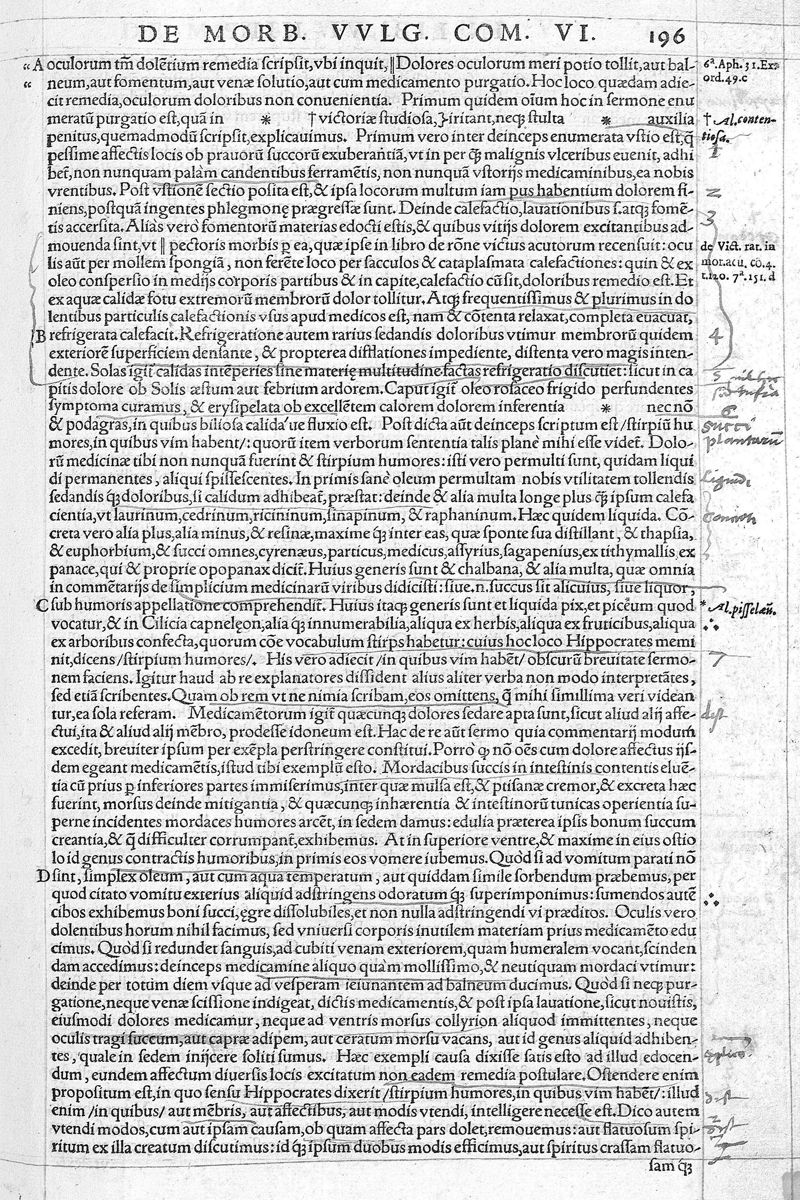 DE MORB. VVLG. COM. VI. 196
“A oculorum tm̃ dolẽtium remedia ſcripſit,vbi inquit,‖Dolores oculorum meri potio tollit,aut bal- 6ª.Aph.31.Ex
“ neum,aut fomentum,aut venæ ſolutio,aut cum medicamento purgatio. Hoc loco quædam adie- ord.49.c
cit remedia,oculorum doloribus non conuenientia. Primum quidem oĩum hoc in ſermone enu
meratũ purgatio eſt,quã in * †victoriæ ſtudioſa,irritant,neq; ſtulta * auxilia †Al.conten-
penitus,quemadmodũ ſcripſit,explicauimus. Primum vero inter deinceps enumerata vſtio eſt,q̃ tioſa.
peſſime affectis locis ob prauorũ ſuccorũ exuberantiã,vt in per q̃; malignis vlceribus euenit, adhi 1
bet̃,non nunquam palàm candentibus ferramẽtis, non nunquã vſtorijs medicaminibus,ea nobis
vrentibus. Poſt vſtionẽ ſectio poſita eſt,& ipſa locorum multum iam pus habentium dolorem fi- 2
niens,poſtquã ingentes phlegmonę prægreſſæ ſunt. Deinde calefactio,lauationibus ſ.atq; fomẽ- 3
tis accerſita. Alias verò fomentorũ materias edocti eſtis,& quibus vitijs dolorem excitantibus ad-
mouenda ſint,vt ‖ pectoris morbis ꝑ ea,quæ ipſe in libro de rõne victus acutorum recenſuit: ocu de Vict. rat. in
lis aũt per mollem ſpongiã, non ferẽte loco per ſacculos & cataplaſmata calefactiones: quin & ex mor.acu, cõ.4.
oleo conſperſio in medijs corporis partibus & in capite,calefactio cũſit,doloribus remedio eſt.Et t.120. 7ª.151.d
ex aquæ calidæ fotu extremorũ membrorũ dolor tollitur. Atq; frequentiſſimus & plurimus in do
lentibus particulis calefactionis vſus apud medicos eſt, nam & cõtenta relaxat,completa euacuat,
B refrigerata calefacit.Refrigeratione autem rarius ſedandis doloribus vtimur membrorũ quidem 4
exteriorẽ ſuperficiem denſante, & propterea difflationes impediente, diſtenta vero magis inten-
dente. Solas igit̃ calidas intẽperies ſine materię multitudine factas refrigeratio diſcutiet: ſicut in ca 5
pitis dolore ob Solis æſtum aut febrium ardorem. Caput igit̃ oleo roſaceo frigido perfundentes
ſymptoma curamus, & eryſipelata ob excellẽtem calorem dolorem inferentia * nec nõ 6
& podagras,in quibus bilioſa calidaúe fluxio eſt. Poſt dicta aũt deinceps ſcriptum eſt /ſtirpiũ hu ſucci
mores,in quibus vim habent/: quorũ item verborum ſententia talis planè mihi eſſe videt̃. Dolo- plantarũ
rũ medicinæ tibi non nunquã fuerint & ſtirpium humores: iſti vero permulti ſunt, quidam liqui
di permanentes , aliqui ſpiſſeſcentes. In primis ſanè oleum permultam nobis vtilitatem tollendis
ſedandis q̃;doloribus,ſi calidum adhibeat̃,præſtat: deinde & alia multa longe plus q̃; ipſum calefa
cientia,vt laurinum,cedrinum,ricininum,ſinapinum, & raphaninum. Hæc quidem liquida. Cõ-
creta vero alia plus,alia minus,& reſinæ,maxime q̃; inter eas, quæ ſponte ſua diſtillant , & thapſia,
& euphorbium,& ſucci omnes,cyrenæus,particus,medicus,aſſyrius,ſagapenius,ex tithymallis,ex
panace,qui & proprie opopanax dicit̃. Huius generis ſunt & chalbana, & alia multa, quæ omnia
in commentarijs de ſimplicium medicinarũ viribus didiciſti: ſiue.n.ſuccus ſit alicuius, ſiue liquor,
C ſub humoris appellatione comprehendit̃. Huius itaq; generis ſunt et liquida pix,et picẽum quod *Al.piſſelæũ.
vocatur,& in Cilicia capnelęon,alia q̃; innumerabilia,aliqua ex herbis,aliqua ex fruticibus,aliqua
ex arboribus confecta,quorum cõe vocabulum ſtirps habetur: cuius hoc loco Hippocrates memi
nit,dicens /ſtirpium humores/. His vero adiecit /in quibus vim habẽt/ obſcurũ breuitate ſermo- 7
nem faciens. Igitur haud ab re explanatores diſſident alius aliter verba non modo interpretãtes,
ſed etiã ſcribentes.Quam ob rem vt ne nimia ſcribam,eos omittens,q̃ mihi ſimillima veri videan
tur,ea ſola referam. Medicamẽtorum igit̃ quæcunq; dolores ſedare apta ſunt,ſicut aliud alij affe-
ctui,ita & aliud alij mẽbro, prodeſſe idoneum eſt.Hac de re aũt ſermo quia commentarij modum
excedit, breuiter ipſum per exẽpla perſtringere conſtitui. Porrò ꝙ nõ oẽs cum dolore affectus ijſ-
dem egeant medicamẽtis,iſtud tibi exemplũ eſto. Mordacibus ſuccis in inteſtinis contentis eluẽ-
tia cũ prius ꝑ inferiores partes immiſerimus,inter quæ mulſa eſt,& ptiſanæ cremor,& excreta hæc
fuerint, morſus deinde mitigantia , & quæcunq; inhærentia & inteſtinorũ tunicas operientia ſu-
perne incidentes mordaces humores arcẽt, in ſedem damus: edulia præterea ipſis bonum ſuccum
creantia,& q̃ difficulter corrumpant̃,exhibemus. At in ſuperiore ventre,& maxime in eius oſtio
lo id genus contractis humoribus,in primis eos vomere iubemus. Quòd ſi ad vomitum parati nõ
D ſint, ſimplex oleum , aut cum aqua temperatum , aut quiddam ſimile ſorbendum præbemus,per
quod citato vomitu exterius aliquid adſtringens odoratum q̃; ſuperimponimus: ſumendos autẽ
cibos exhibemus boni ſucci,ęgre diſſolubiles,et non nulla adſtringendi vi præditos. Oculis vero
dolentibus horum nihil facimus, ſed vniuerſi corporis inutilem materiam prius medicamẽto edu
cimus. Quòd ſi redundet ſanguis,ad cubiti venam exteriorem,quam humeralem vocant,ſcinden
dam accedimus: deinceps medicamine aliquo quàm molliſſimo,& neutiquam mordaci vtimur:
deinde per totum diem vſque ad veſperam ieiunantem ad balneum ducimus. Quòd ſi neq; pur-
gatione,neque venæ ſciſſione indigeat, dictis medicamentis,& poſt ipſa lauatione,ſicut nouiſtis,
eiuſmodi dolores medicamur, neque ad ventris morſus collyrion aliquod immittentes, neque
oculis tragi ſuccum,aut capræ adipem, aut ceratum morſu vacans, aut id genus aliquid adhiben-
tes , quale in ſedem inijcere ſoliti ſumus. Hæc exempli cauſa dixiſſe ſatis eſto ad illud edocen-
dum , eundem affectum diuerſis locis excitatum non eadem remedia poſtulare. Oſtendere enim
propoſitum eſt,in quo ſenſu Hippocrates dixerit /ſtirpium humores,in quibus vim habẽt/: illud
enim /in quibus/ aut mẽbris, aut affectibus, aut modis vtendi, intelligere neceſſe eſt.Dico autem
vtendi modos,cum aut ipſam cauſam,ob quam affecta pars dolet,remouemus: aut flatuoſum ſpi-
ritum ex illa creatum diſcutimus: id q̃; ipſum duobus modis efficimus,aut ſpiritus craſſam flatuo-
ſam q̃;